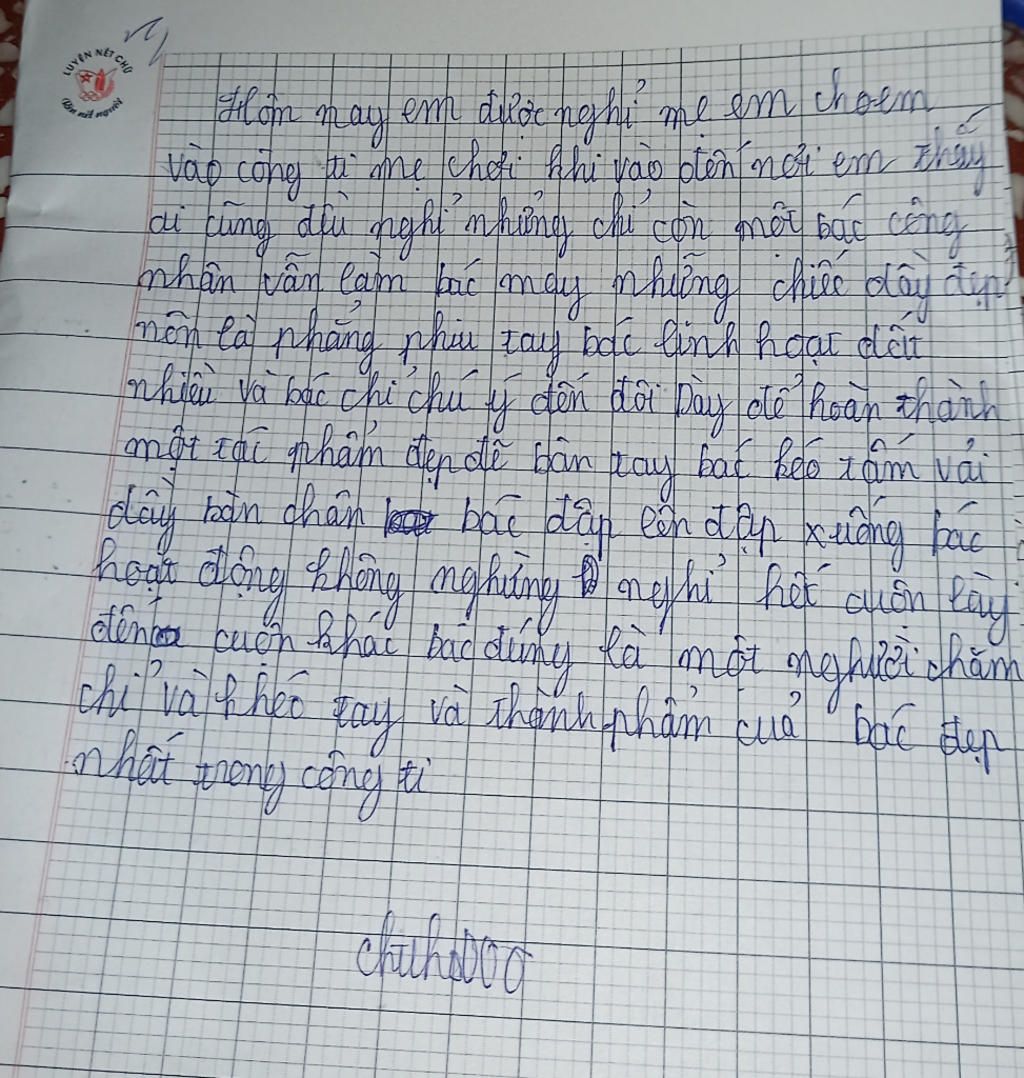 LUYỆN NÉT CHỮ
Rèn nết người
Hôm nay em được nghỉ mẹ em cho em
vào công ti mẹ chơi khi vào đến nơi em thấy
ai cũng đều nghỉ nhưng chỉ còn một bác công
nhân vẫn làm bác may những chiếc dây đẹp
nôn là phẳng phiu tay bác linh hoạt đều
nhiều và bác chỉ chú ý đến đôi dày để hoàn thành
một tác phẩm đẹp đẽ bàn tay bác kéo tấm vải
dây bàn chân bác đập lên đập xuống bác
hoạt động không nghừng nghỉ hết cuôn lày
đến cuộn khác bác đúng là một nghười chăm
chỉ và khéo tay và thành phẩm cuả bác đẹp
nhất trong công ti